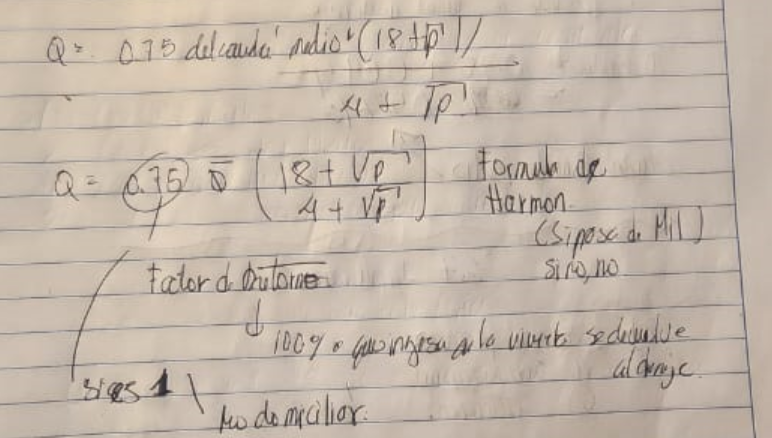 Q = 0.75 del caudal medio (18 + √p) /
4 + √p
Q = 0.75 Q̅ (18 + √p / 4 + √p) Formula de
Harmon
(Si pasa de Mil)
si no, no
Factor d
↓
100% que ingresa a la se devuelve
al drenaje.
si es 1
No domiciliar.